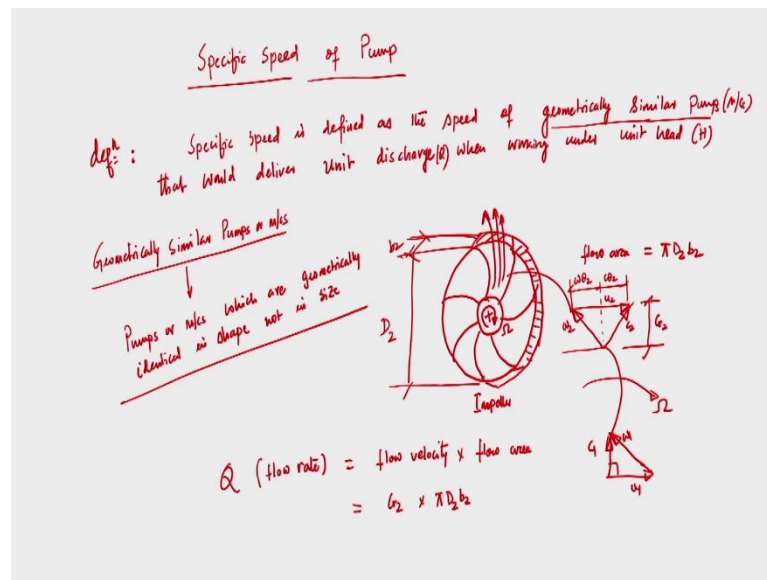 Specific Speed of Pump
defn : Specific speed is defined as the speed of geometrically similar Pumps (m/cs)
that would deliver unit discharge (Q) when working under unit head (H)
Geometrically Similar Pumps or m/cs
Pumps or m/cs which are geometrically
identical in shape not in size
b2
D2
Ω
Impeller
flow area = πD2b2
ωθ2 cθ2
u2
ω2 c2
Ω
Q (flow rate) = flow velocity x flow area
= x πD2b2